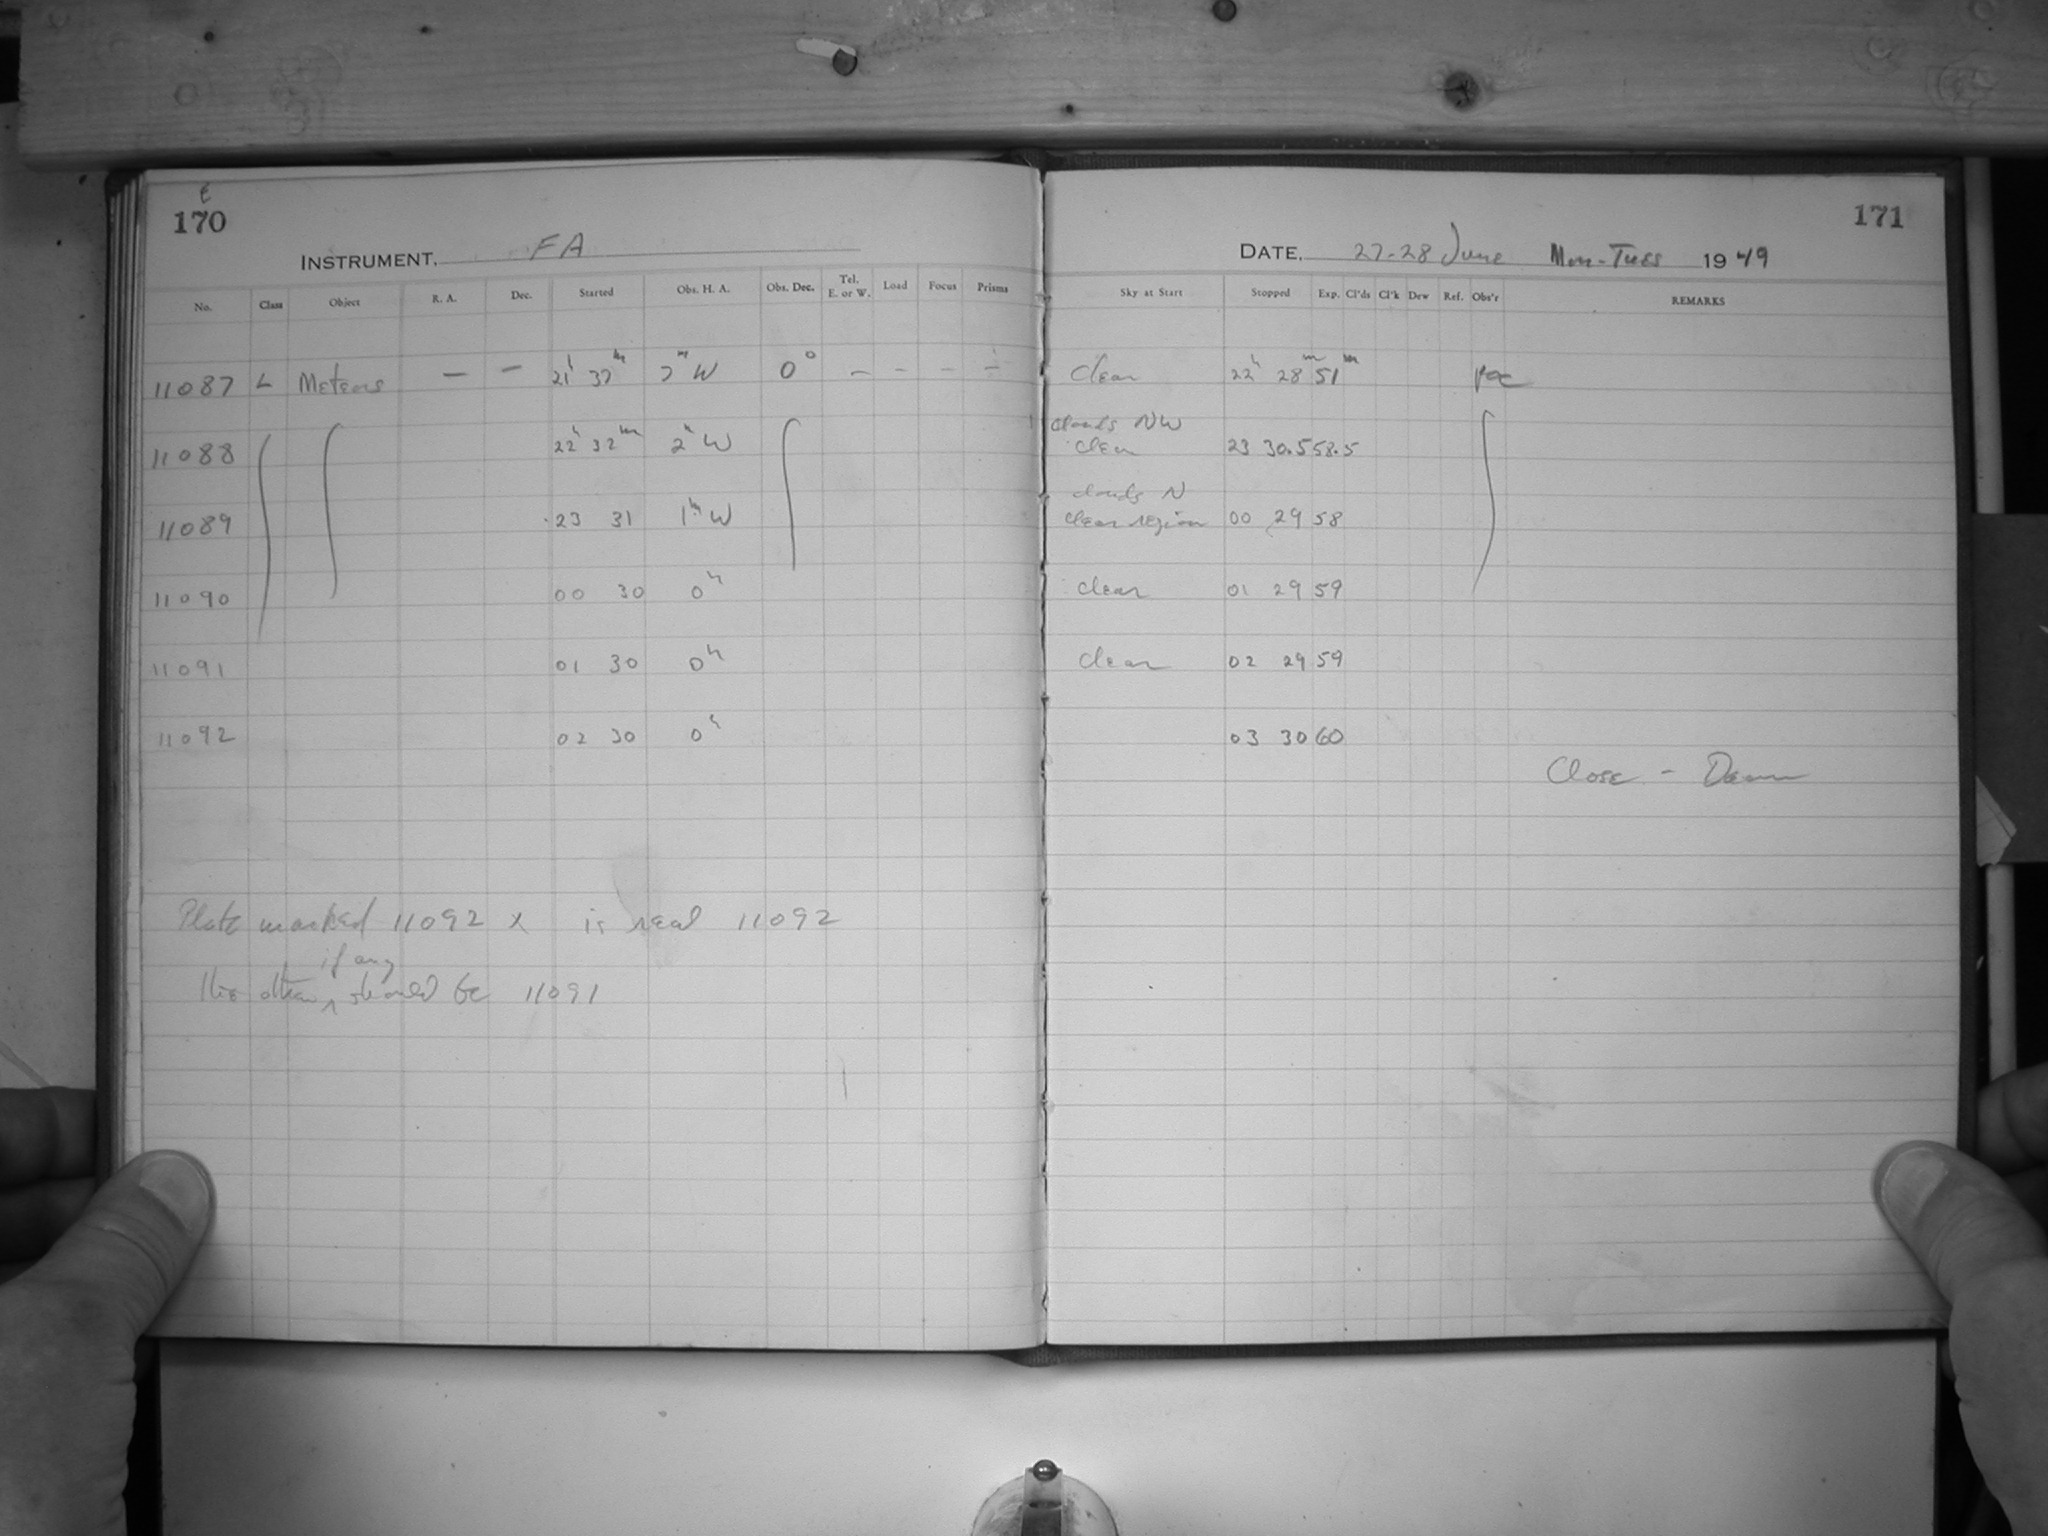 170
INSTRUMENT. FA
No. Class Object R. A. Dec. Started Obs. H. A. Obs. Dec. Tel. E. or W. Load Focus Prisms
11087 L Meteors — — 21h 37m W 0° — — — —
11088 22h 32m 2h W
11089 23 31 1h W
11090 00 30 0h
11091 01 30 0h
11092 02 30 0h
Plate marked 11092 x is real 11092
if any
the other, should be 11091
171
DATE. 27-28 June Mon-Tues 1949
Sky at Start Stopped Exp. Cl'ds Cl'k Dew Ref. Obs'r REMARKS
Clear 22h 28m 51m
clouds NW
clear 23 30.5 58.5
clouds N
clear region 00 29 58
clear 01 29 59
clear 02 29 59
03 30 60
Close - Dawn